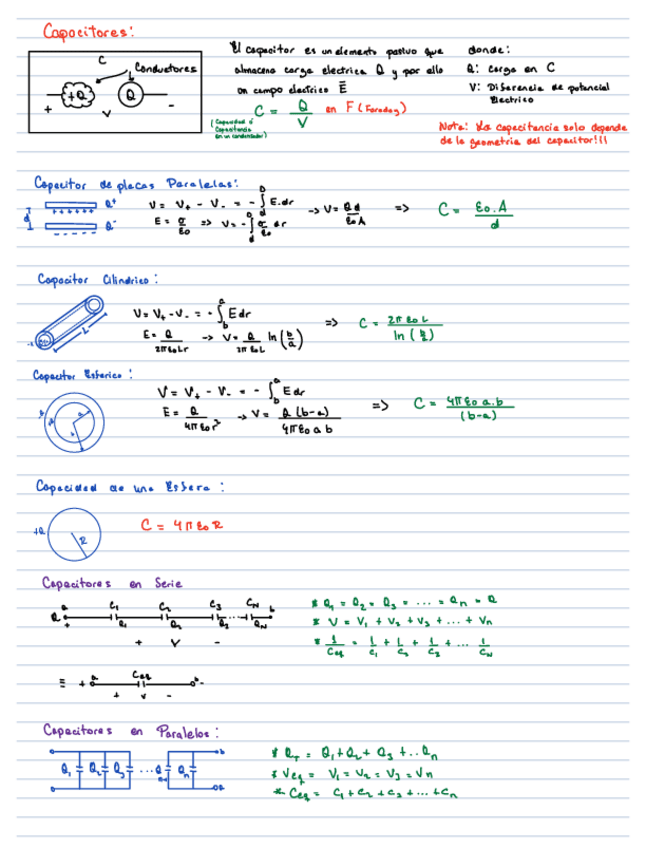 Capacitores:
C
Conductores
+Q
Q
+
V
-
El capacitor es un elemento pasivo que
almacena carga electrica Q y por ello
un campo electrico E̅
C = Q/V en F (Faraday)
(Capacidad o
Capacitancia
en un condensador)
donde:
Q: carga en C
V: Diferencia de potencial
Electrico
Nota: La capacitancia solo depende
de la geometria del capacitor!!!
Capacitor de placas Paralelas:
d
Q⁺
++++++
Q⁻
V = V₊ - V₋ = -∫ E.dr
E = σ/εo => V = -∫ σ/εo dr
-> V = Qd/εoA => C = εo.A/d
Capacitor Cilindrico:
L
V = V₊ - V₋ = -∫ᵇₐ E dr
E = Q/2πεoLr -> V = Q/2πεoL ln(b/a)
=> C = 2πεoL/ln(b/a)
Capacitor Esferico:
V = V₊ - V₋ = -∫ᵇₐ E dr
E = Q/4πεor² -> V = Q(b-a)/4πεo a b
=> C = 4πεo a.b/(b-a)
Capacidad de una Esfera:
+Q
R
C = 4πεoR
Capacitores en Serie
a C₁ C₂ C₃ ... CN b
Q Q₁ Q₂ Q₃ QN
+ V -
* Q₁ = Q₂ = Q₃ = ... = Qn = Q
* V = V₁ + V₂ + V₃ + ... + Vn
* 1/Ceq = 1/C₁ + 1/C₂ + 1/C₃ + ... 1/CN
≡ + a Ceq b -
+ V -
Capacitores en Paralelos:
Q₁ Q₂ Q₃ ... Qn
* QT = Q₁+Q₂+Q₃+..Qn
* Veq = V₁=V₂=V₃=Vn
* Ceq = C₁+C₂+C₃+...+Cn